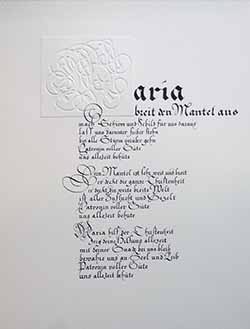 Maria
breit den Mantel aus
mach Schirm und Schild für uns daraus
laß uns darunter sicher stehn
bis alle Stürm vorüber gehn
Patronin voller Güte
uns allezeit behüte
Dein Mantel ist sehr weit und breit
Er deckt die ganze Christenheit
er deckt die weite breite Welt
ist aller Zuflucht und Gezelt
Patronin voller Güte
uns allezeit behüte
Maria hilf der Christenheit
zeig deine Hilf uns allezeit
mit deiner Gnad bei uns bleib
bewahre uns an Seel und Leib
Patronin voller Güte
uns allezeit behüte